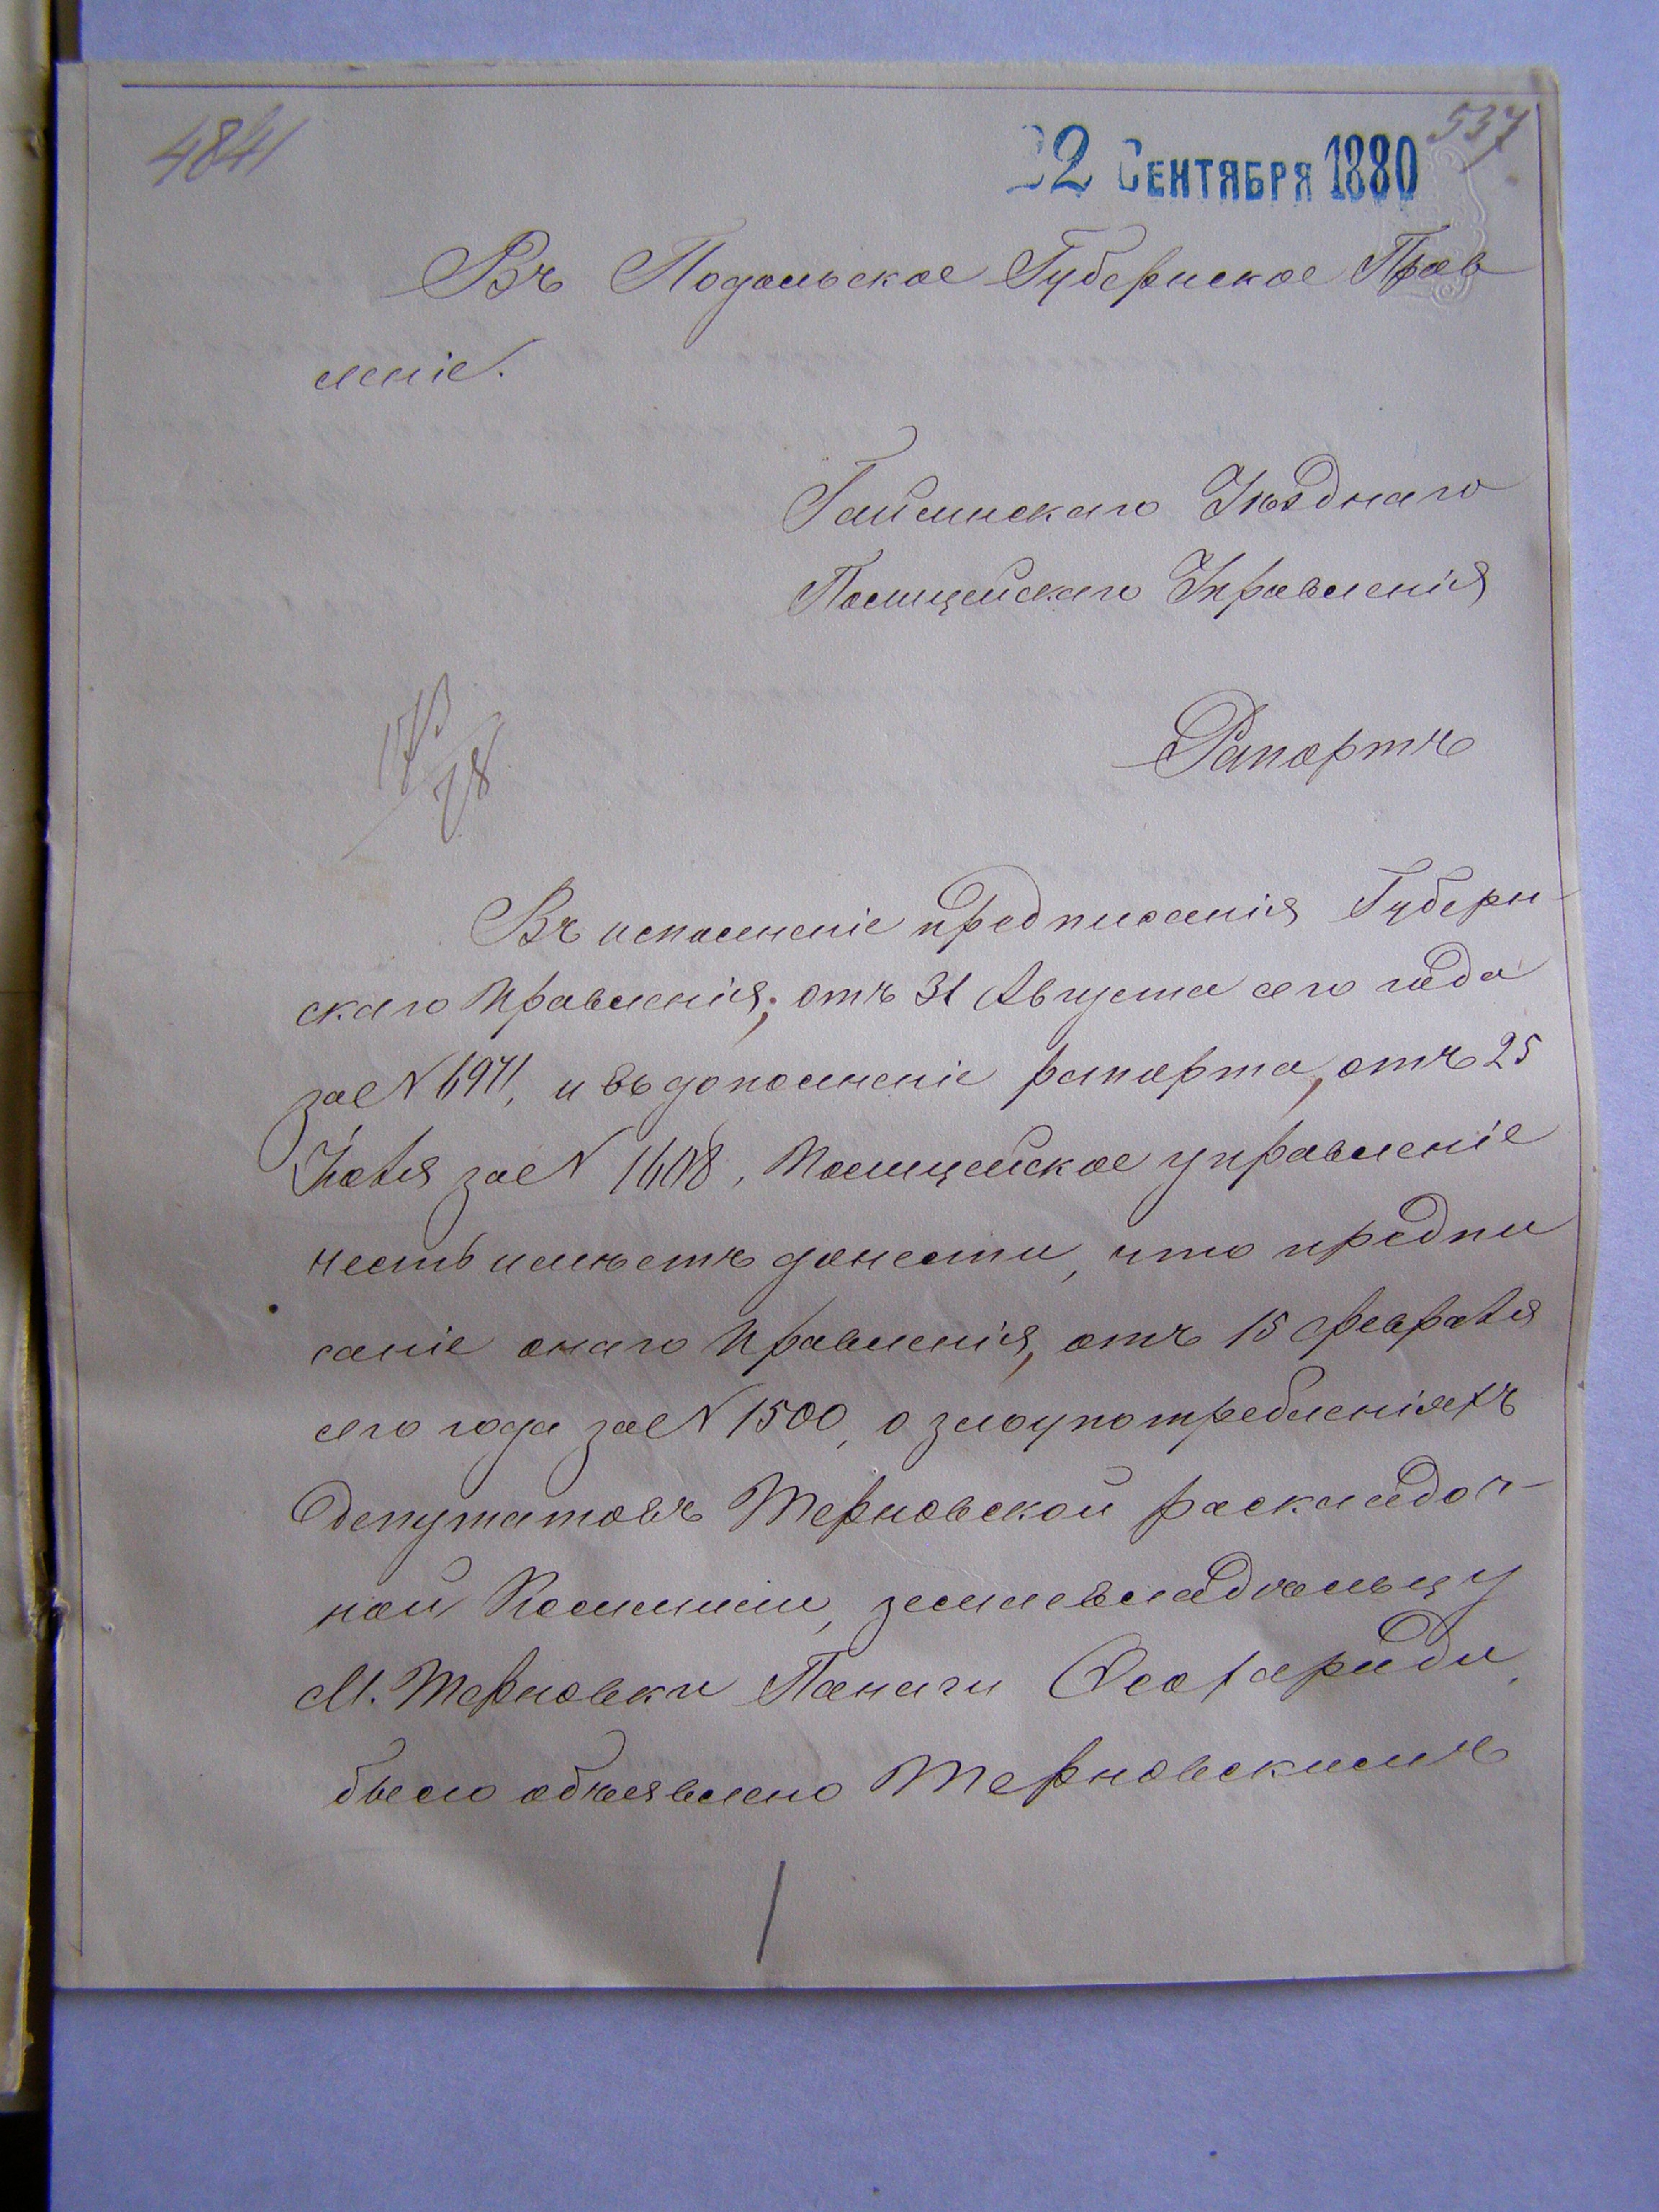 4841
537
22 Сентября 1880
Въ Подольское Губернское Прав
леніе.
Гайсинскаго Уѣзднаго
Полицейскаго Управленія
Рапортъ
Въ исполненіе предписанія Губерн-
скаго Правленія, отъ 31 Августа сего года
за № 6971, и въ дополненіе рапорта, отъ 25
Іюля за № 1608, Полицейское управленіе
честь имѣетъ донести, что предпи
саніе онаго Правленія, отъ 15 февраля
сего года за № 1500, о злоупотребленіяхъ
депутатовъ Терновской раскладоч-
ной Коммиссіи, землевладѣльцу
М. Терновки Панаги Ѳеохариди,
было объявлено Терновскимъ